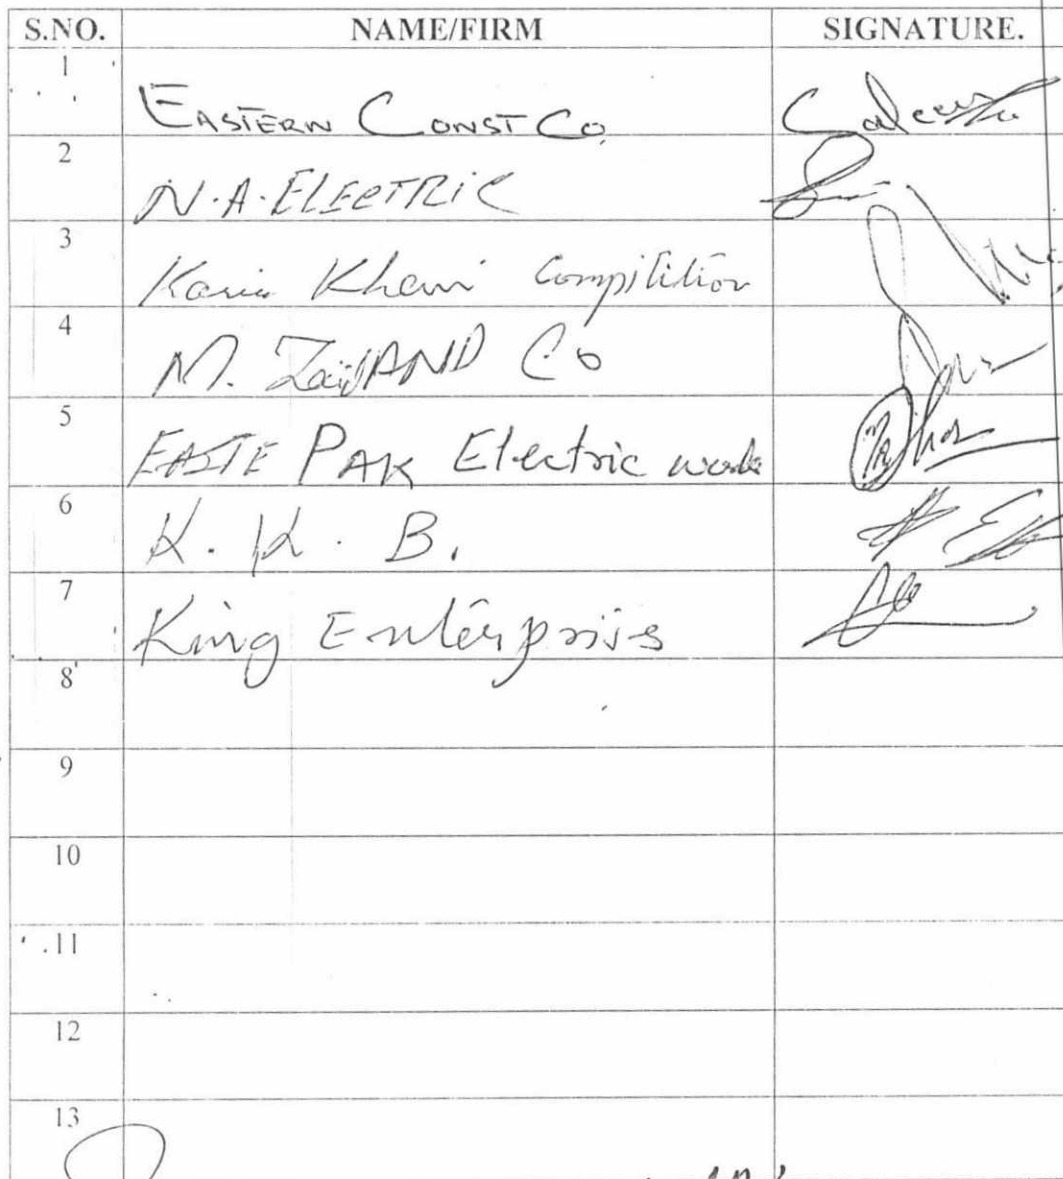 S.NO. NAME/FIRM SIGNATURE.
1 EASTERN CONST CO.
2 N.A. ELECTRIC
3 Khani Compitition
4 M. Zaid AND Co
5 EASTE PAK Electric work
6 K. K. B.
7 King Enterprises
8
9
10
11
12
13